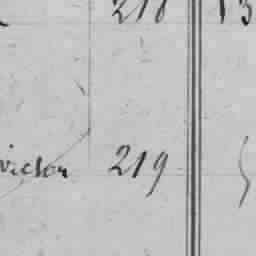 218 13
victor 219 5